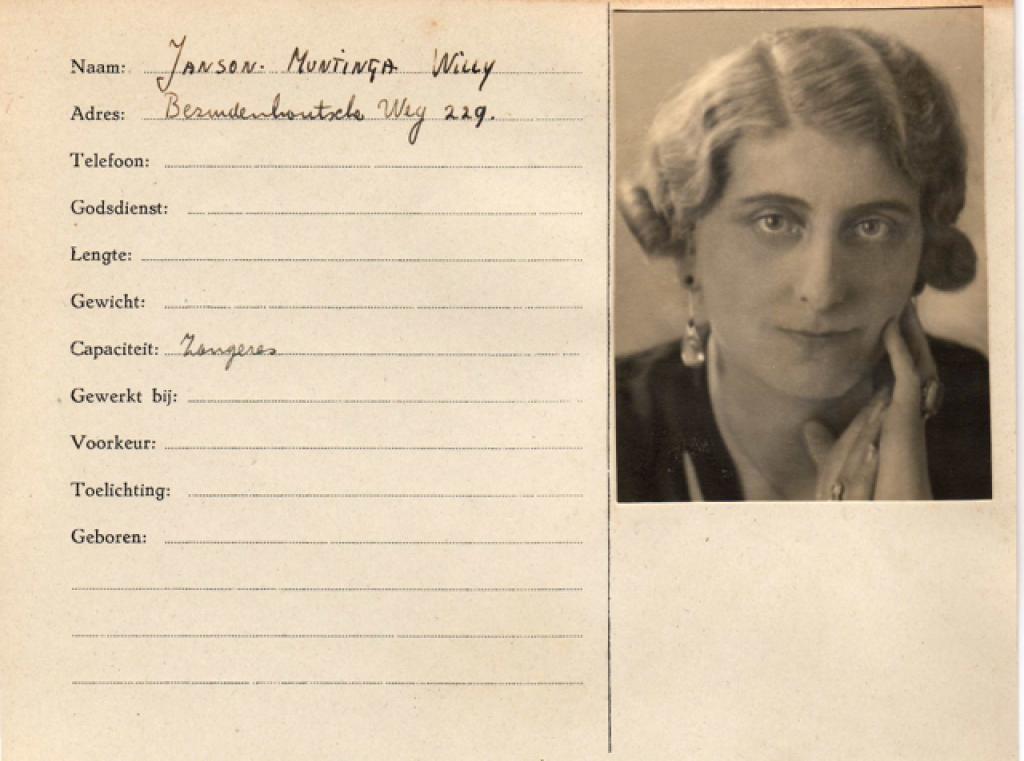 Naam: JANSON. MUNTINGA WILLY
Adres: Bezuidenhoutsche Weg 229.
Telefoon:
Godsdienst:
Lengte:
Gewicht:
Capaciteit: Zangeres
Gewerkt bij:
Voorkeur:
Toelichting:
Geboren: